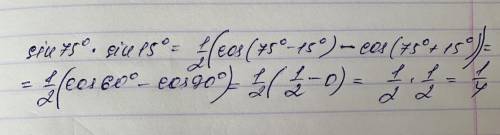 sin75°·sin15°= 1/2(cos(75°-15°)-cos(75°+15°))=
= 1/2(cos60°-cos90°)= 1/2(1/2-0)= 1/2·1/2= 1/4